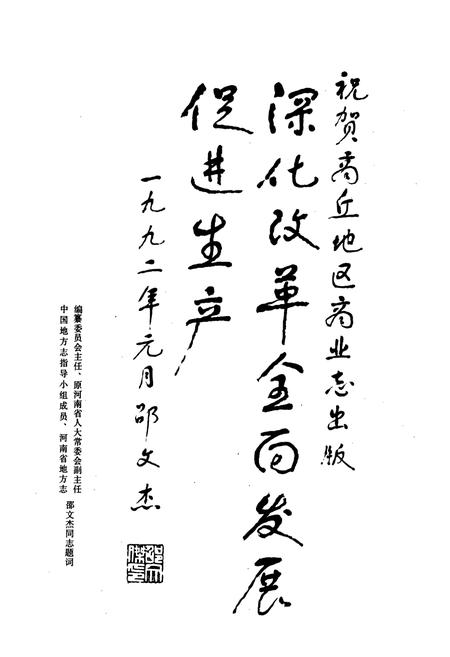 祝贺商丘地区商业志出版
深化改革全面发展
促进生产
一九九二年元月 邵文杰
中国地方志指导小组成员、河南省地方志
编纂委员会主任、原河南省人大常委会副主任
邵文杰同志题词